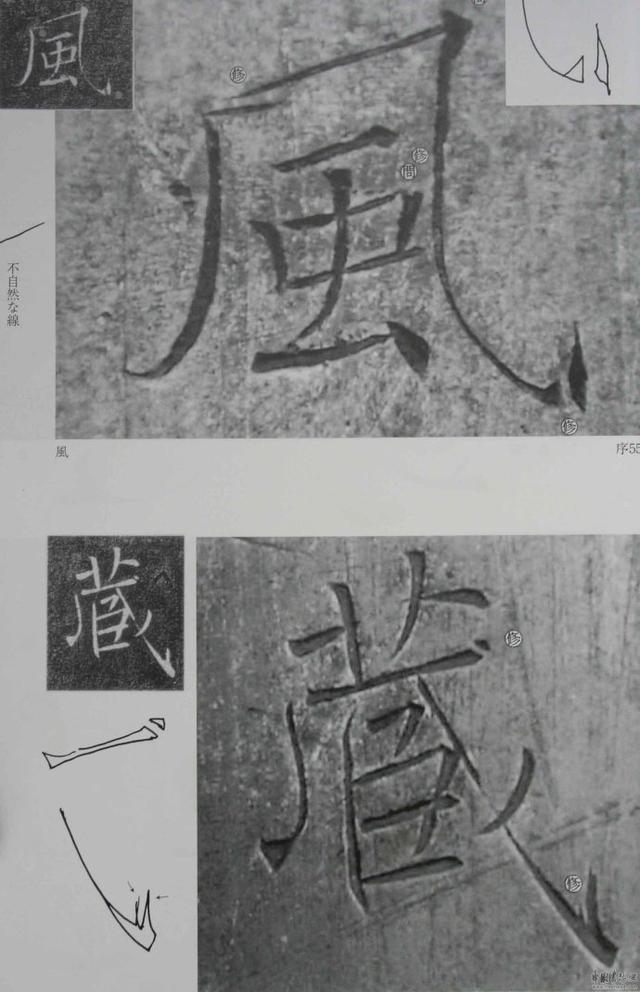 風
修
修
間
風
修
不自然な線
風
序55
蔵
蔵
修
修